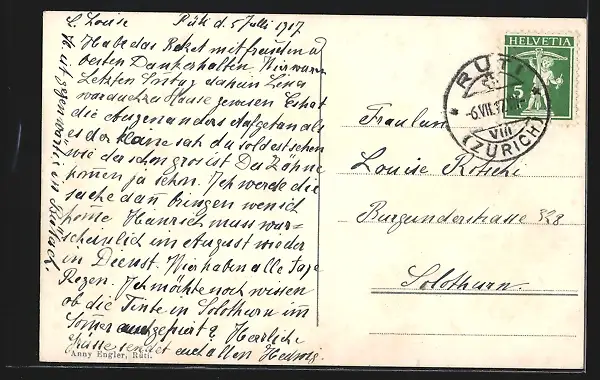 L. Louise Rüti d. 5 Julli 1917
Habe das Paket mit freuden u
besten Dank erhalten. Wir waren
Letzten Sontag da hin Lina
war auch zu Hause gewesen Er hat
die Augen anders Aufgetan als
es der kleine sah du soldest sehen
wie der schon gros ist Der Zöhne
komen ja schon. Ich werde die
sache dan bringen wen ich
kome Heinrich muss war-
scheinlich im August wieder
in Dienst. Wir haben alle Tage
Regen. Ich möchte noch wissen
ob die Tinte in Solothurn im
Somer auch gefriert? Herzliche
Grüsse sendet euch allen Hedwig.
Anny Engler, Rüti.
HELVETIA
5
RÜTI
-6.VII.17
VIII
(ZÜRICH)
Fräulein
Louise Rötschi
Burgunderstrasse 328
Solothurn.